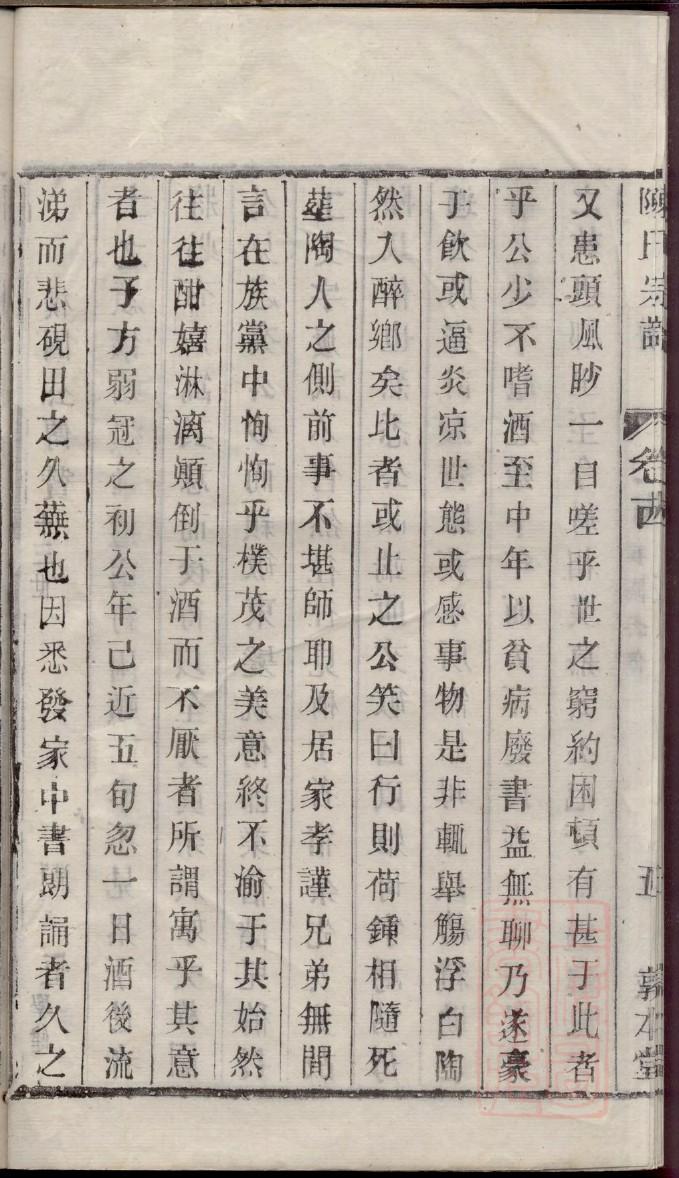 陳氏宗譜 卷十四 五 敦本堂
又患頭風眇一目嗟乎世之窮約困頓有甚于此者
乎公少不嗜酒至中年以貧病廢書益無聊乃遂豪
于飲或逼炎凉世態或感事物是非輒舉觴浮白陶
然入醉鄉矣比者或止之公笑曰行則荷鍤相隨死
葬陶人之側前事不堪師耶及居家孝謹兄弟無間
言在族黨中恂恂乎樸茂之美意終不渝于其始然
往往酣嬉淋漓顛倒于酒而不厭者所謂寓乎其意
者也予方弱冠之初公年已近五旬忽一日酒後流
涕而悲硯田之久蕪也因悉發家中書朗誦者久之